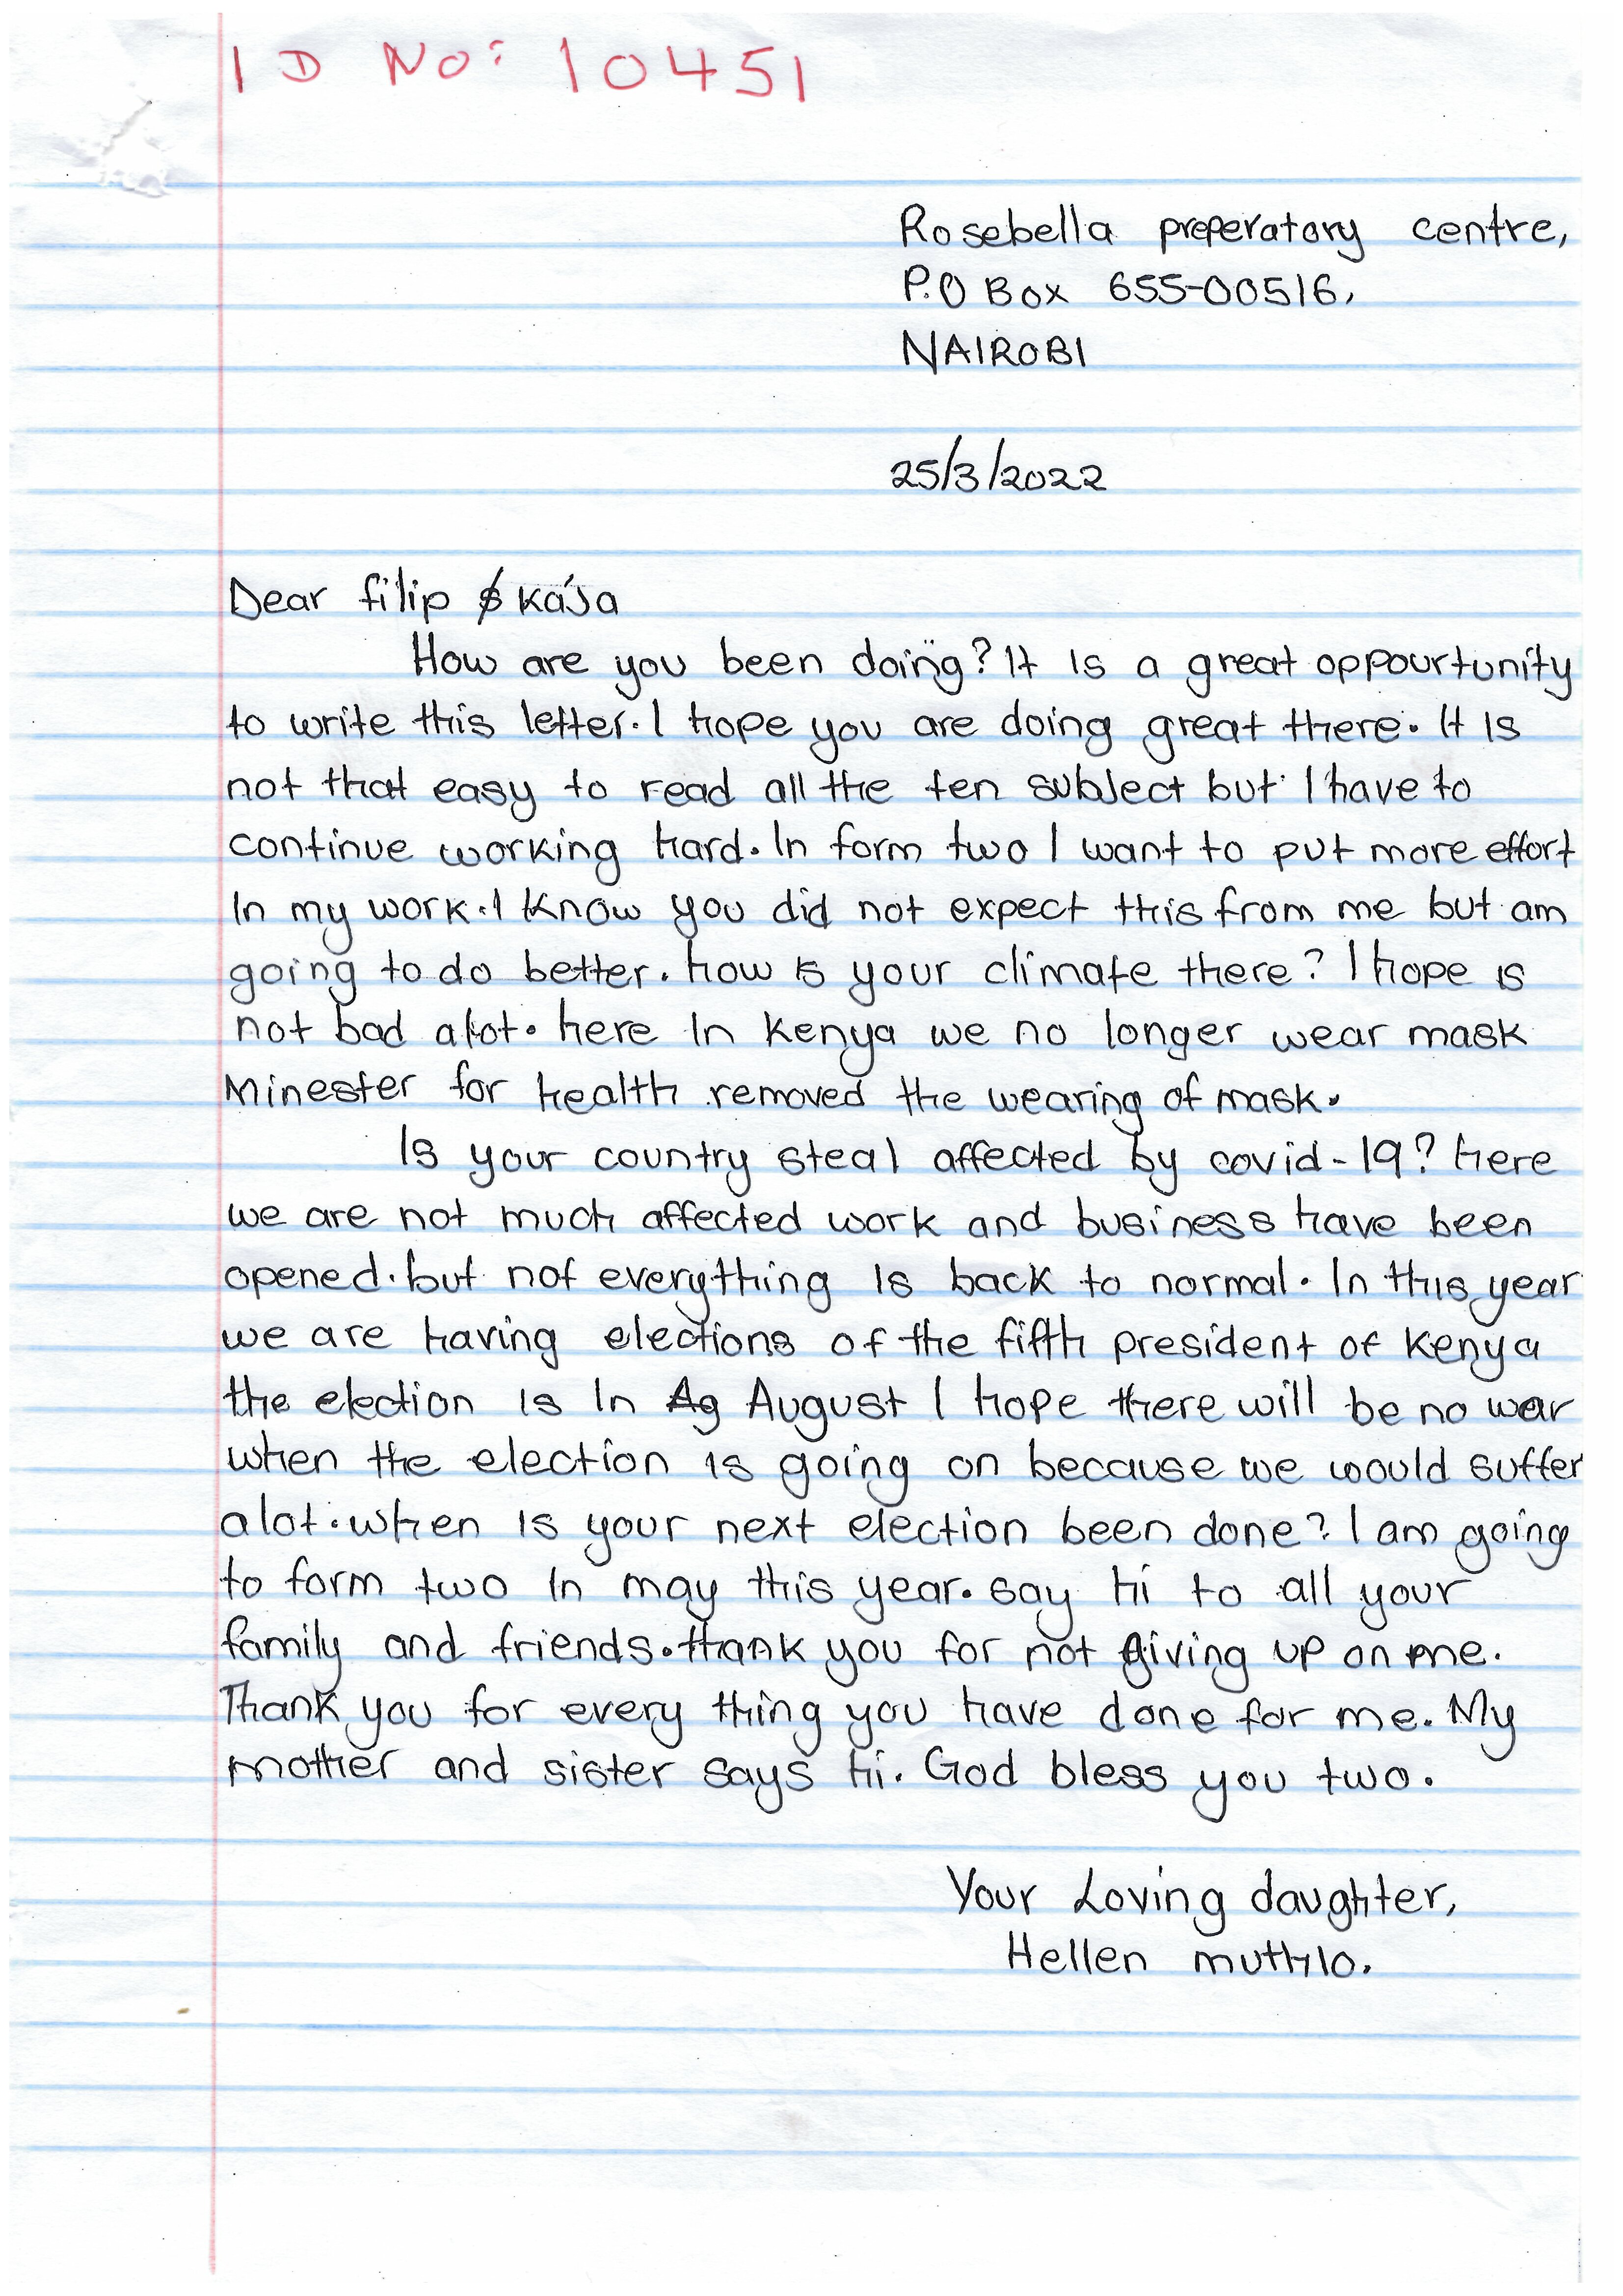 ID No: 10451
Rosebella preperatory centre,
P.O Box 655-00516,
NAIROBI
25/3/2022
Dear filip & Kája
How are you been doing? It is a great oppourtunity
to write this letter. I hope you are doing great there. It is
not that easy to read all the ten subject but I have to
continue working hard. In form two I want to put more effort
In my work. I know you did not expect this from me but am
going to do better. how is your climate there? I hope is
not bad alot. here In Kenya we no longer wear mask
Minester for health removed the wearing of mask.
Is your country steal affected by covid-19? here
we are not much affected work and business have been
opened. but not everything is back to normal. In this year
we are having elections of the fifth president of Kenya
the election is In Ag August I hope there will be no war
when the election is going on because we would suffer
alot. when is your next election been done? I am going
to form two In may this year. say hi to all your
family and friends. thank you for not giving up on me.
Thank you for every thing you have done for me. My
mother and sister says hi. God bless you two.
Your Loving daughter,
Hellen muthio.